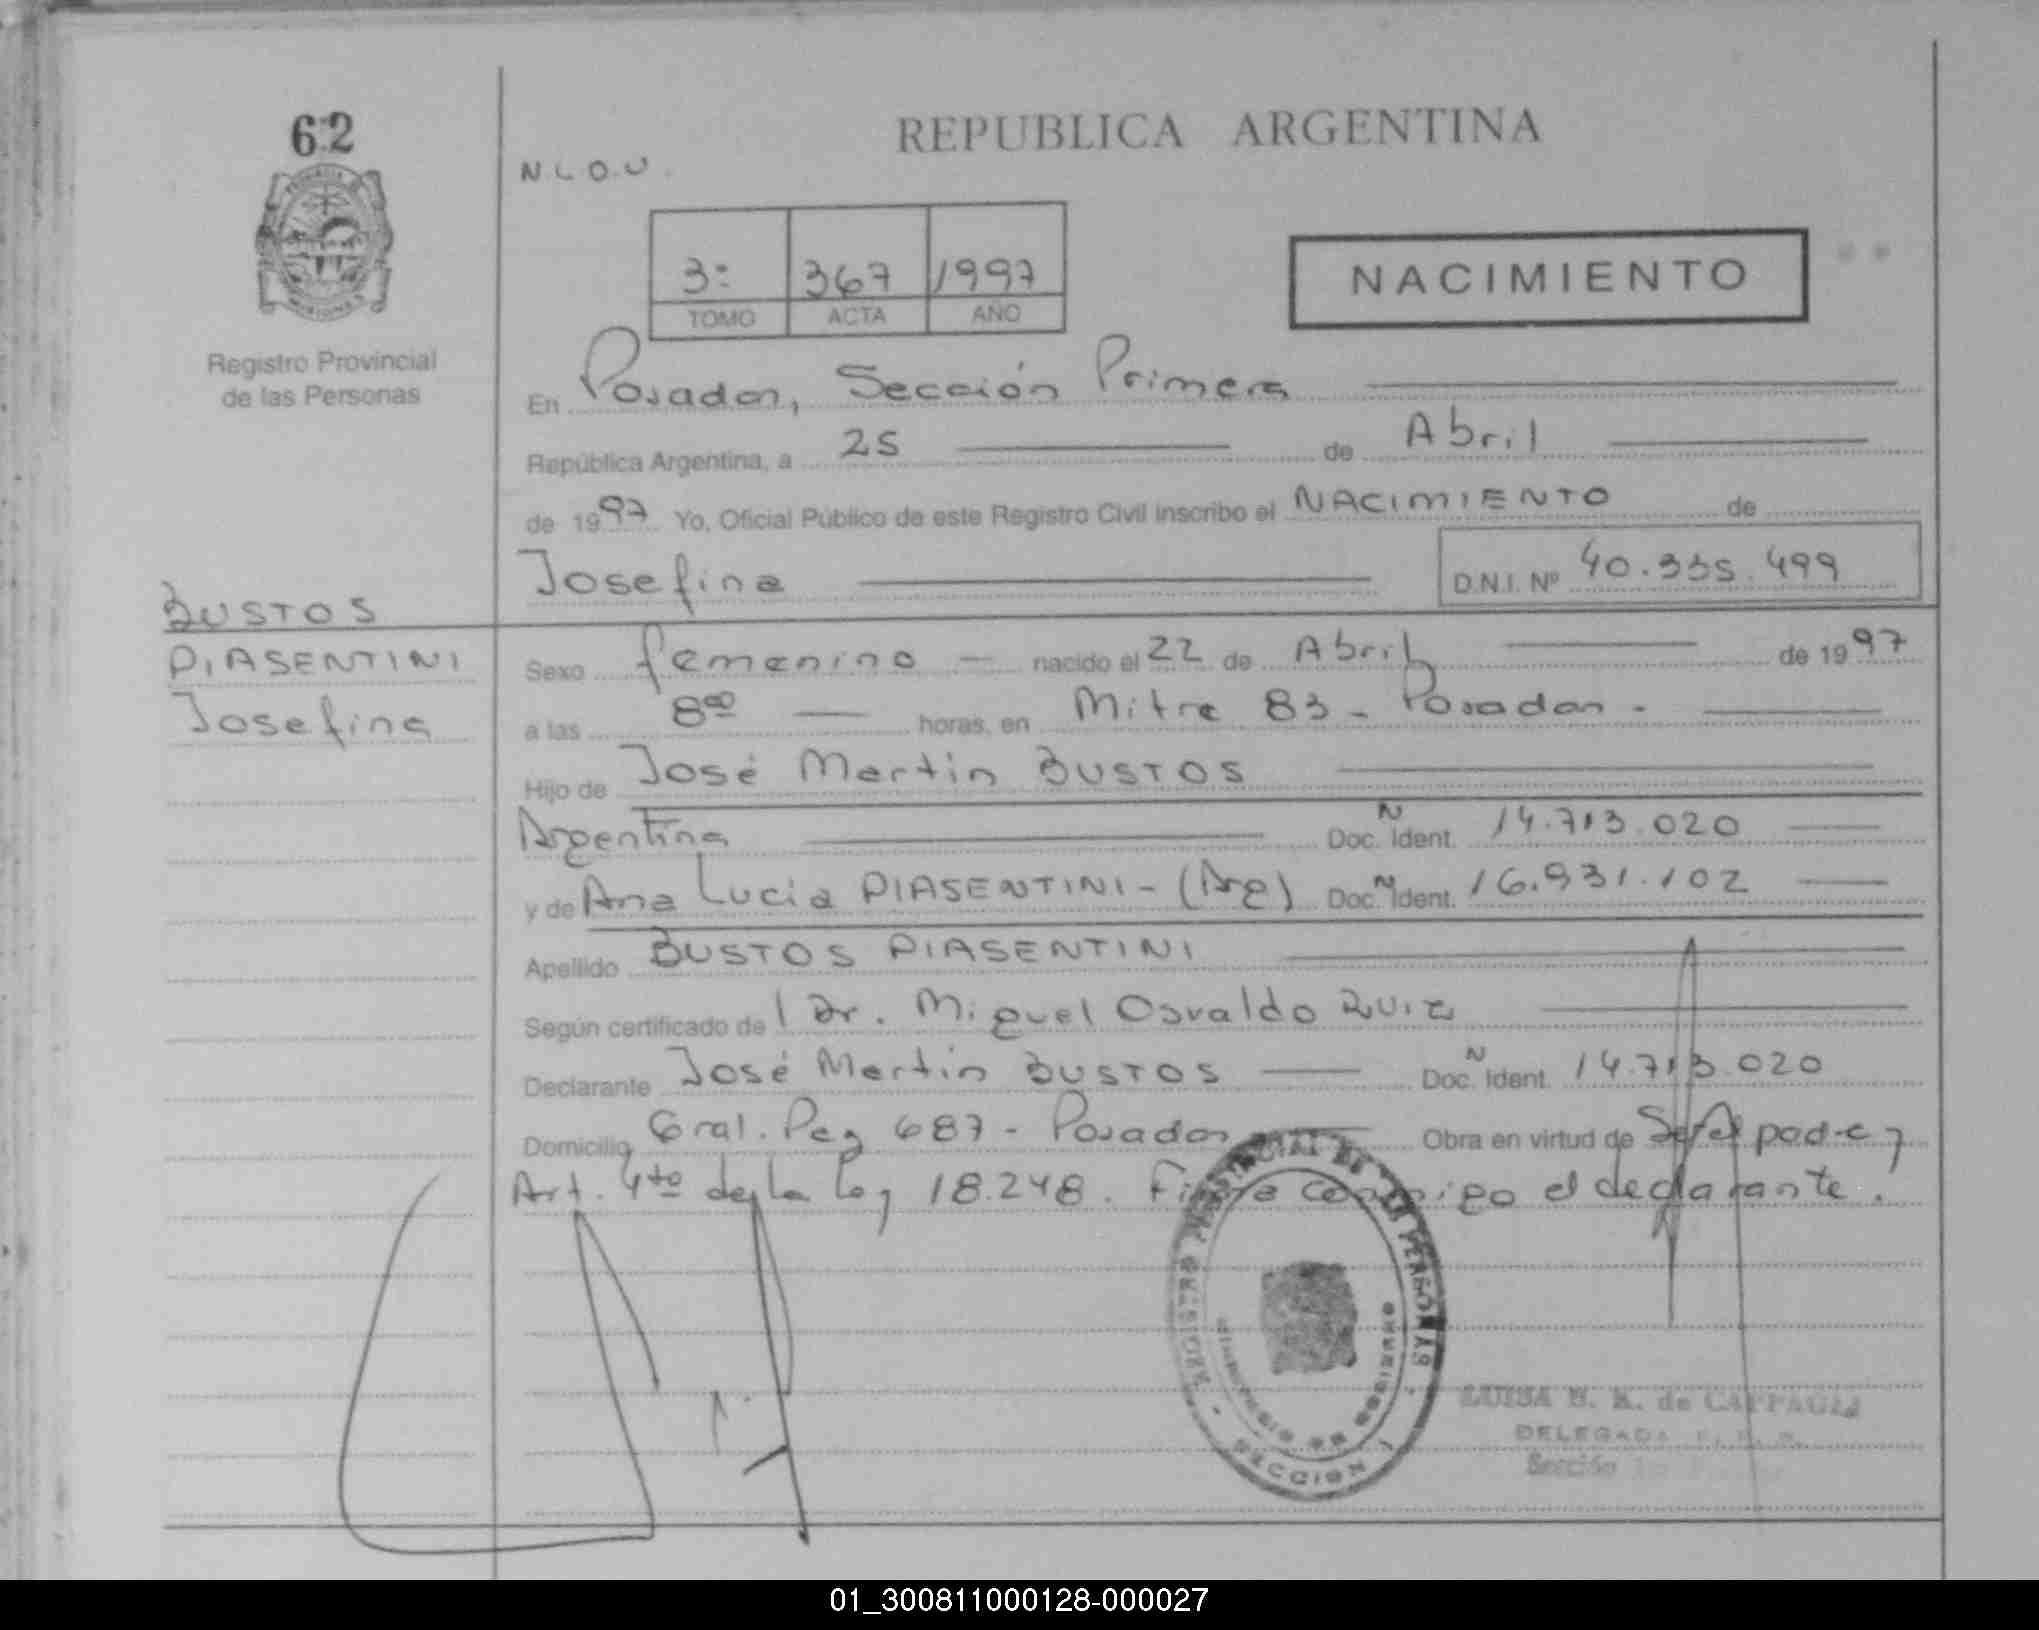 62
REPUBLICA ARGENTINA
N.L.O.U.
3: 367 1997
TOMO ACTA AÑO
NACIMIENTO
Registro Provincial
de las Personas
En Posadas, Sección Primera
República Argentina, a 25 de Abril
de 1997 Yo, Oficial Público de este Registro Civil inscribo el NACIMIENTO de
Josefina D.N.I. Nº 40.335.499
BUSTOS
PIASENTINI
Josefina
Sexo femenino nacido el 22 de Abril de 1997
a las 8:00 horas, en Mitre 83 - Posadas -
Hijo de José Martín BUSTOS
Argentina Doc. N Ident. 14.713.020
y de Ana Lucia PIASENTINI - (Arg) Doc. N Ident. 16.931.102
Apellido BUSTOS PIASENTINI
Según certificado de l Dr. Miguel Osvaldo Ruiz
Declarante José Martín BUSTOS Doc. N Ident. 14.713.020
Domicilio Gral. Paz 687 - Posadas Obra en virtud de Ser el padre y
Art. 4to de la Ley 18.248. Firma conmigo el declarante.
REGISTRO PROVINCIAL DE LAS PERSONAS
MINISTERIO DE GOBIERNO
SECCION 1
LUISA de
DELEGADA
Sección
01_300811000128-000027